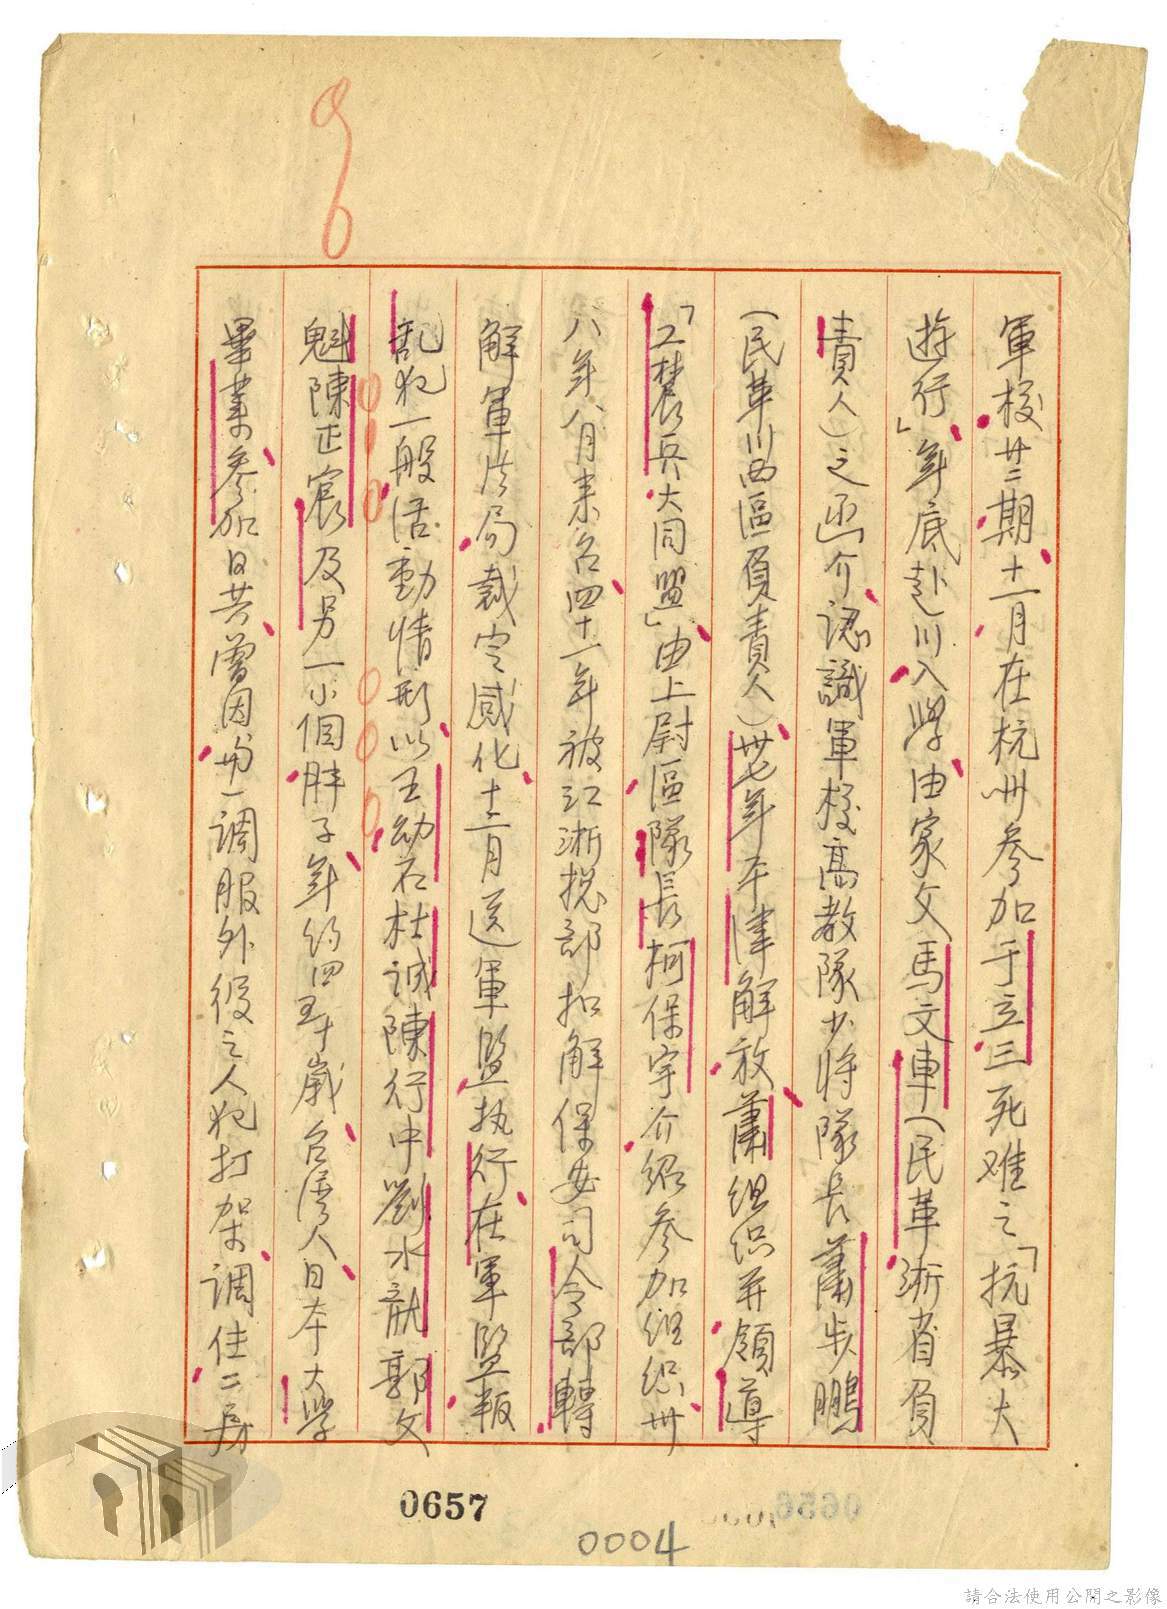 軍校廿二期十一月在杭州參加于立三死难之「抗暴大
遊行」年底赴川入學由家父馬文車（民革浙省負
責人）之函介認識軍校高教隊少将隊長蕭步鵬
（民革川西區負責人）卅七年平津解放蕭組织并領導
「工農兵大同盟」由上尉區隊長柯保宇介紹參加组织卅
八年八月来台四十一年被江浙总部扣解保安司令部轉
解軍法局裁定感化十二月送軍監执行在軍監叛
乱犯一般活動情形以王幼石杜誠陳行中劉水龍郭文
魁陳正宸及另一小個胖子年约四五十歲台湾人日本大學
畢業參加日共曾因与一調服外役之人犯打架調住二房
0657
0004
0656
96
請合法使用公開之影像